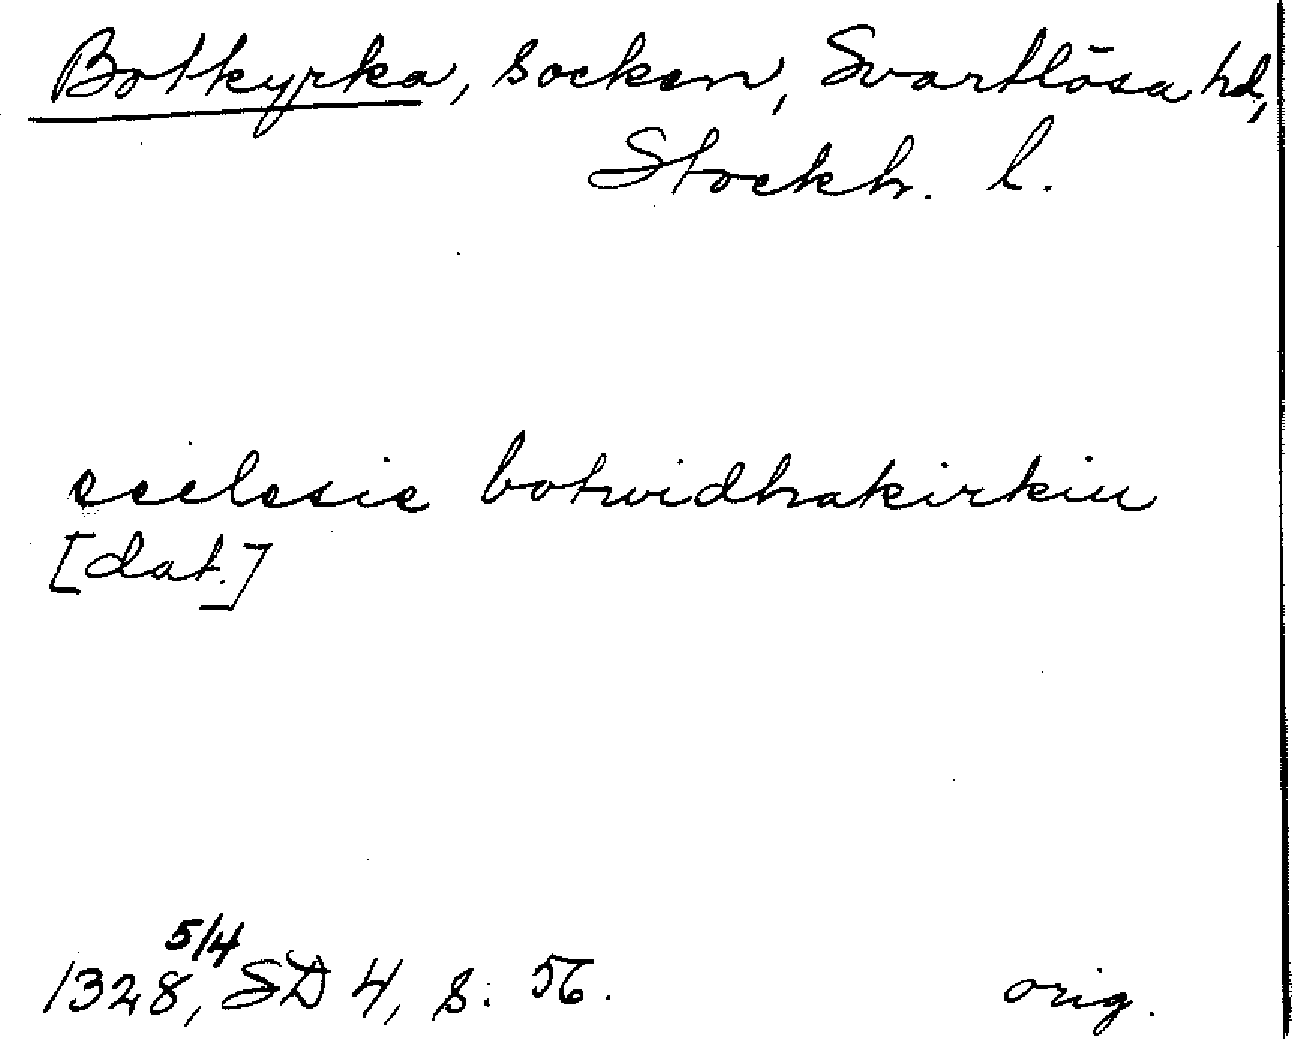 Botkyrka, socken, Svartlösa hd,
Stockh. l.
ecclesie botwidhakirkiu
[dat.]
5/4
1328, SD 4, s. 56.
orig.